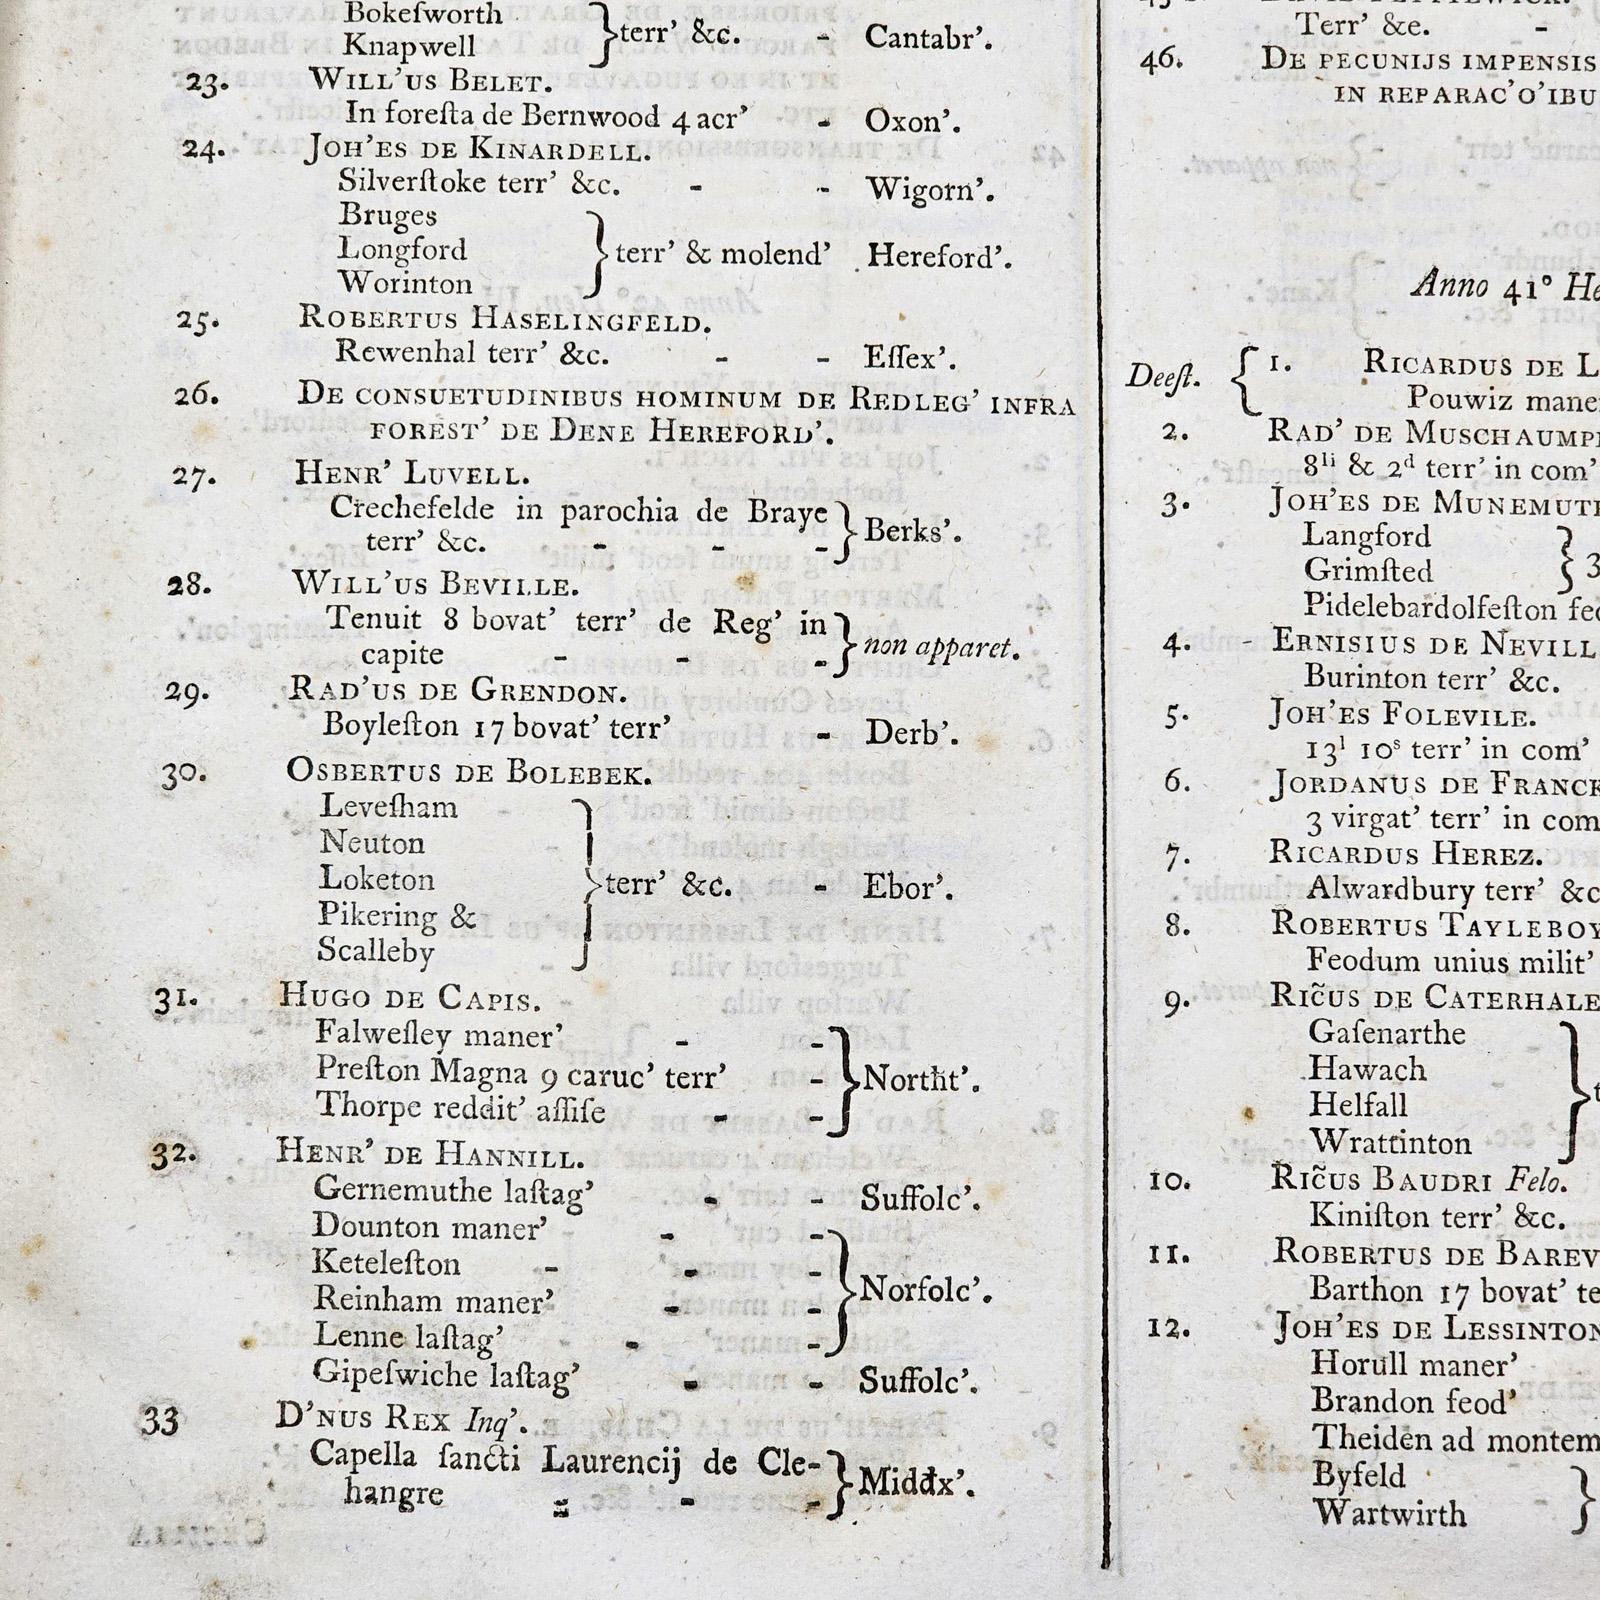 Bokeſworth
Knapwell } terr' &c. - Cantabr'.
23. WILL'US BELET.
In foreſta de Bernwood 4 acr' - Oxon'.
24. JOH'ES DE KINARDELL.
Silverſtoke terr' &c. - - Wigorn'.
Bruges
Longford } terr' & molend' Hereford'.
Worinton
25. ROBERTUS HASELINGFELD.
Rewenhal terr' &c. - - Eſſex'.
26. DE CONSUETUDINIBUS HOMINUM DE REDLEG' INFRA
FOREST' DE DENE HEREFORD'.
27. HENR' LUVELL.
Crechefelde in parochia de Braye
terr' &c. - - - } Berks'.
28. WILL'US BEVILLE.
Tenuit 8 bovat' terr' de Reg' in
capite - - - } non apparet.
29. RAD'US DE GRENDON.
Boyleſton 17 bovat' terr' - Derb'.
30. OSBERTUS DE BOLEBEK.
Leveſham
Neuton
Loketon } terr' &c. - Ebor'.
Pikering &
Scalleby
31. HUGO DE CAPIS.
Falweſley maner' - -
Preſton Magna 9 caruc' terr' - } Northt'.
Thorpe reddit' aſſiſe - -
32. HENR' DE HANNILL.
Gernemuthe laſtag' - - Suffolc'.
Dounton maner' - -
Keteleſton - - -
Reinham maner' - - } Norfolc'.
Lenne laſtag' - -
Gipeſwiche laſtag' - - Suffolc'.
33 D'NUS REX Inq'.
Capella ſancti Laurencij de Cle-
hangre - - - } Middx'.
Terr' &c. -
46. DE PECUNIJS IMPENSIS
IN REPARAC'O'IBU
Anno 41° He
Deeſt. { 1. RICARDUS DE L
Pouwiz mane
2. RAD' DE MUSCHAUMP
8li & 2d terr' in com'
3. JOH'ES DE MUNEMUT
Langford
Grimſted } 3
Pidelebardolfeſton feo
4. ERNISIUS DE NEVILL
Burinton terr' &c.
5. JOH'ES FOLEVILE.
13l 10s terr' in com'
6. JORDANUS DE FRANCK
3 virgat' terr' in com
7. RICARDUS HEREZ.
Alwardbury terr' &c
8. ROBERTUS TAYLEBOY
Feodum unius milit'
9. RIC̃US DE CATERHALE
Gaſenarthe
Hawach
Helfall } t
Wrattinton
10. RIC̃US BAUDRI Felo.
Kiniſton terr' &c.
11. ROBERTUS DE BAREV
Barthon 17 bovat' te
12. JOH'ES DE LESSINTON
Horull maner'
Brandon feod'
Theiden ad montem
Byfeld
Wartwirth }